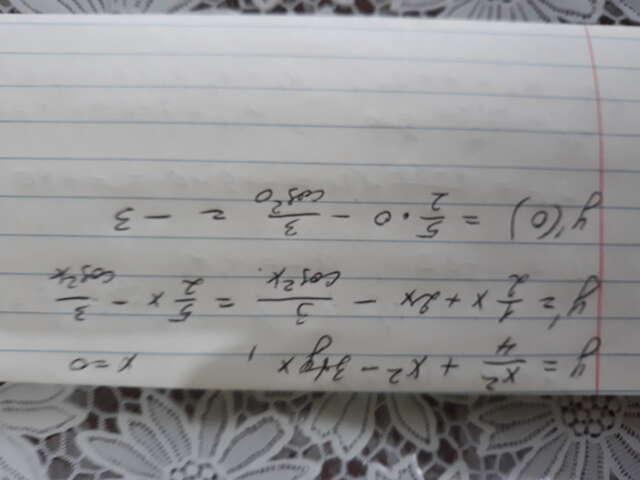 y = x²/4 + x² - 3tg x, x = 0
y' = 1/2 x + 2x - 3/cos²x = 5/2 x - 3/cos²x
y'(0) = 5/2 · 0 - 3/cos²0 = -3